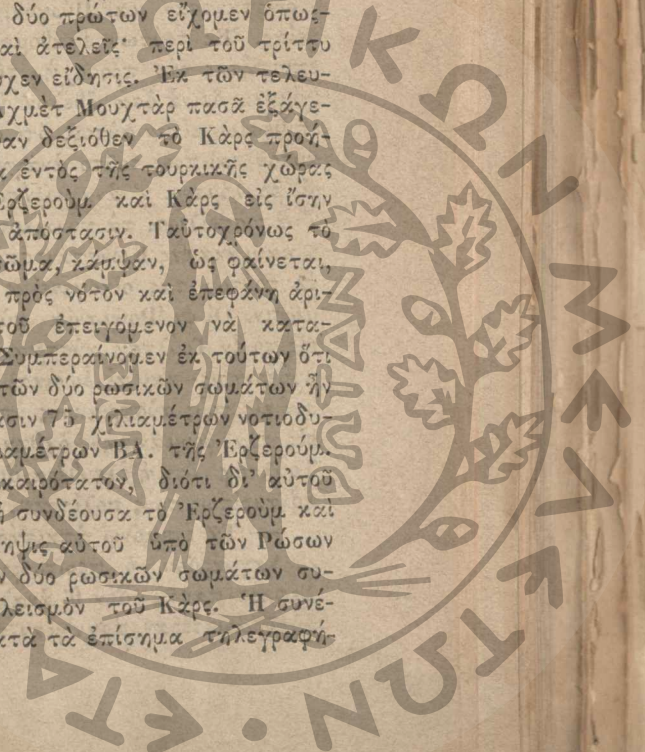 δύο πρώτων εἴχομεν ὅπως-
αὶ ἀτελεῖς· περὶ τοῦ τρίττυ
χεν εἴδησις. Ἐκ τῶν τελευ-
χμὲτ Μουχτὰρ πασᾶ ἐξάγε-
αν δεξιόθεν τὸ Κὰρς προή-
κ ἐντὸς τῆς τουρκικῆς χώρας
Ἐρζεροὺμ καὶ Κὰρς εἰς ἴσην
ἀπόστασιν. Ταὐτοχρόνως τὸ
σῶμα, κάμψαν, ὡς φαίνεται,
πρὸς νότον καὶ ἐπεφάνη ἀρι-
τοῦ ἐπειγόμενον νὰ κατα-
Συμπεραίνομεν ἐκ τούτων ὅτι
τῶν δύο ρωσικῶν σωμάτων ἦν
ασιν 75 χιλιαμέτρων νοτιοδυ-
αμέτρων ΒΑ. τῆς Ἐρζερούμ.
καιρότατον, διότι δι' αὐτοῦ
ἡ συνδέουσα τὸ Ἐρζεροὺμ καὶ
ηψις αὐτοῦ ὑπὸ τῶν Ρώσων
ν δύο ρωσικῶν σωμάτων συ-
λεισμὸν τοῦ Κάρς. Ἡ συνέ-
ατὰ τὰ ἐπίσημα τηλεγραφή-